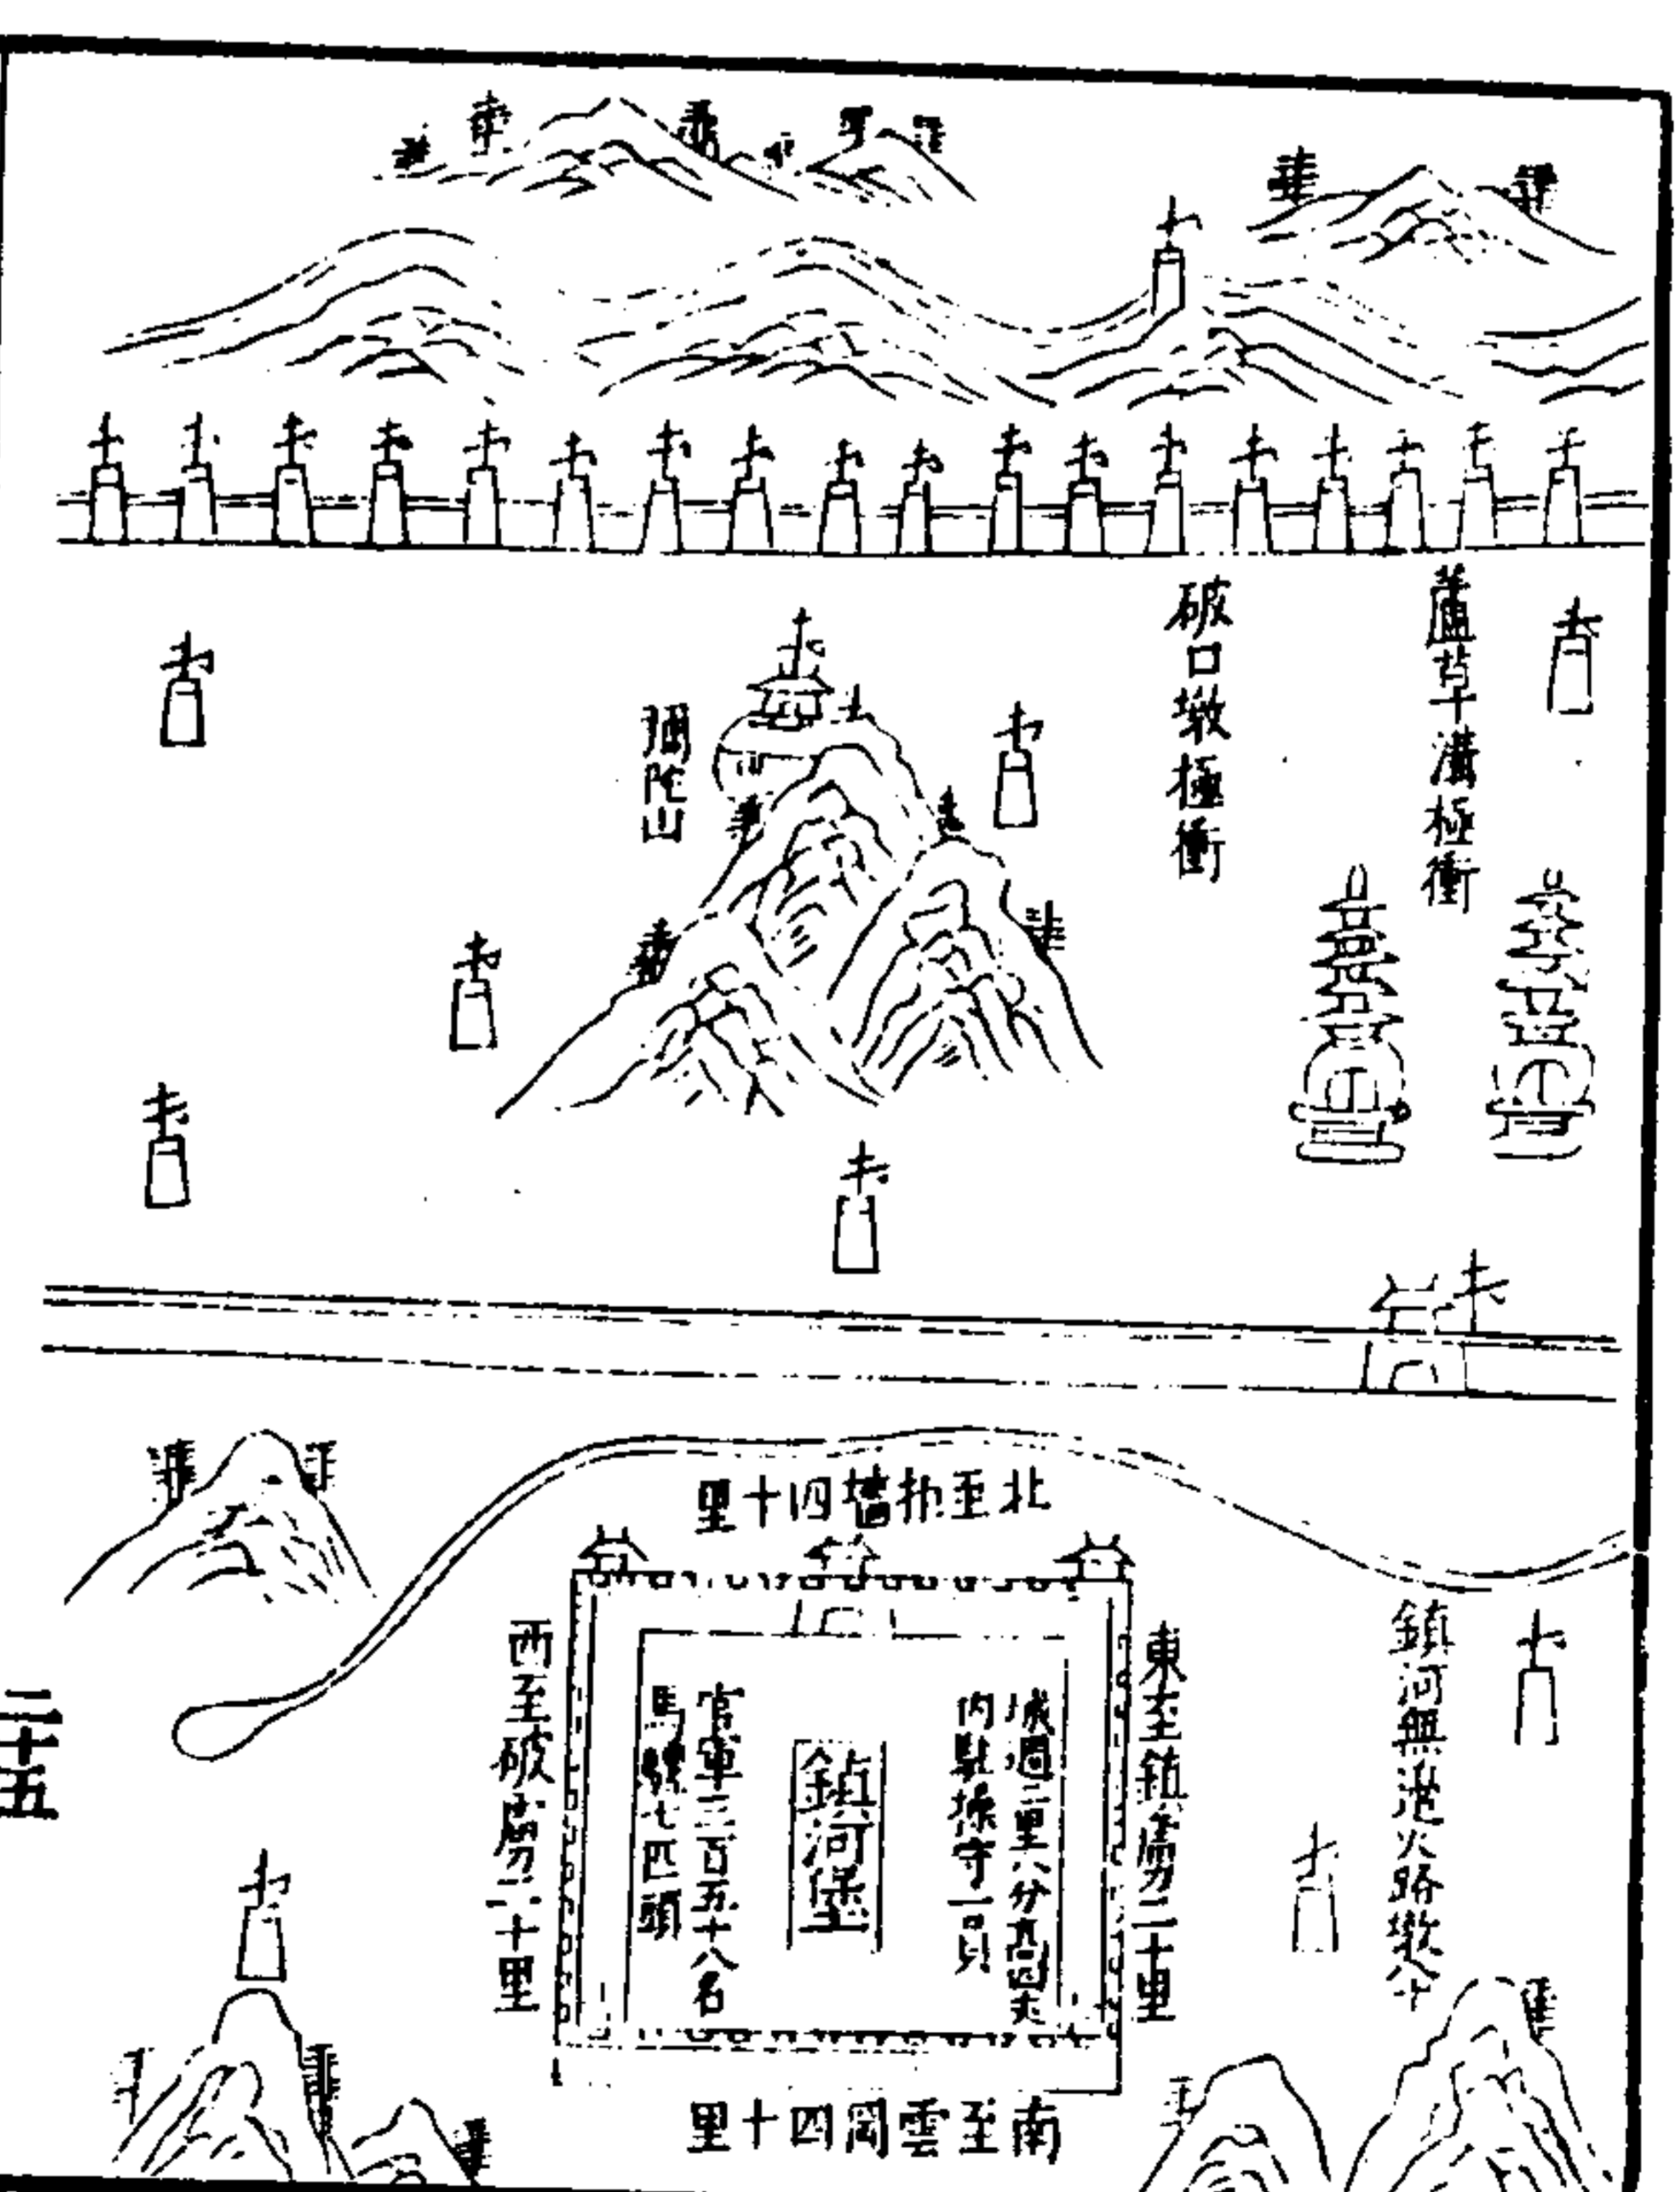 蘆草溝極衝
破口墩極衝
彌陀山
北至邊墻四十里
鎮河無邊火路墩八
東至鎮虜二十里
城週二里六分高四丈
內駐操守一員
鎮河堡
官軍三百五十八名
馬騾七匹頭
西至破虜二十里
南至雲岡四十里
二十五